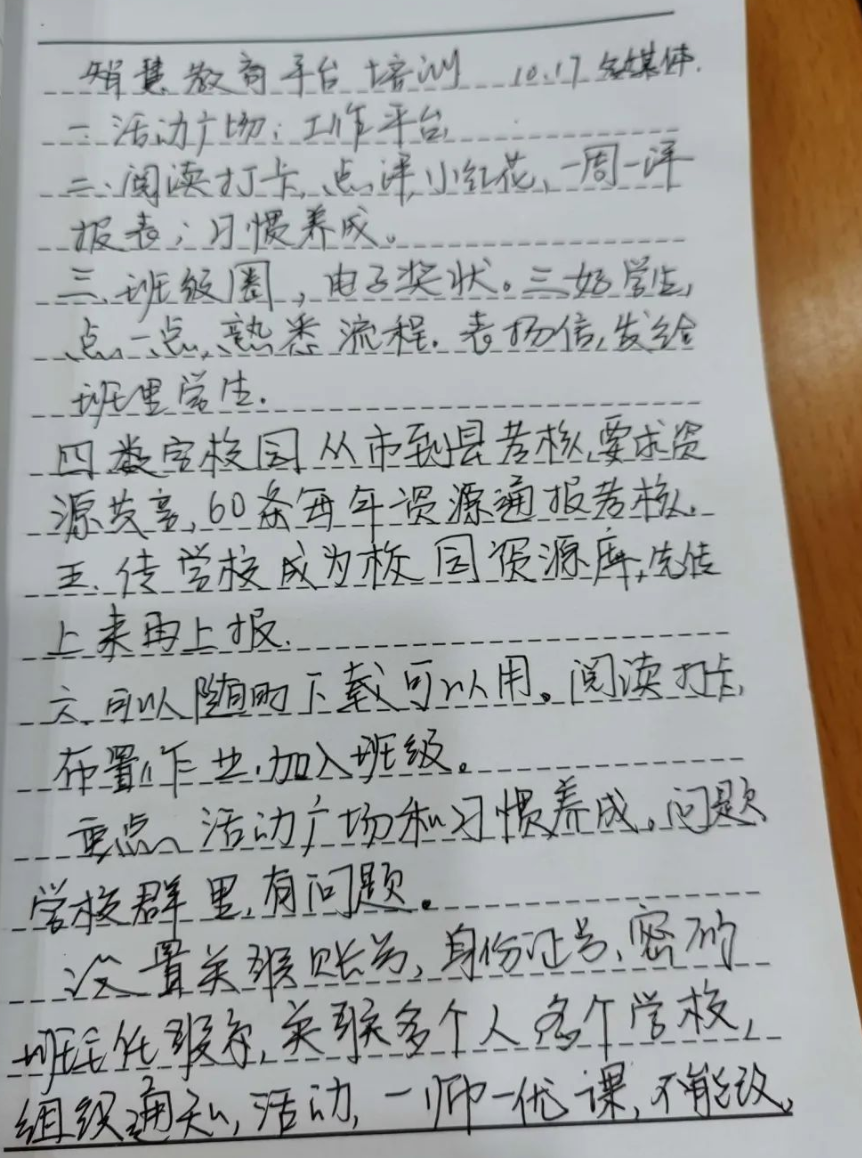 智慧教育平台培训 10.17 多媒体.
一.活动广场:工作平台
二.阅读打卡,点评,小红花、一周一评
报表;习惯养成。
三.班级圈,电子奖状。三好学生,
点一点,熟悉流程.表扬信,发给
班里学生.
四数字校园从市到县考核,要求资
源共享,60条每年资源通报考核.
五.传学校成为校园资源库,先传
上来再上报.
六.可以随时下载可以用。阅读打卡,
布置作业,加入班级。
重点、活动广场和习惯养成。问题
学校群里,有问题。
设置关联账号,身份证号,密码
班主任联系,关联多个人多个学校,
组织通知,活动,一师一优课,不能改。